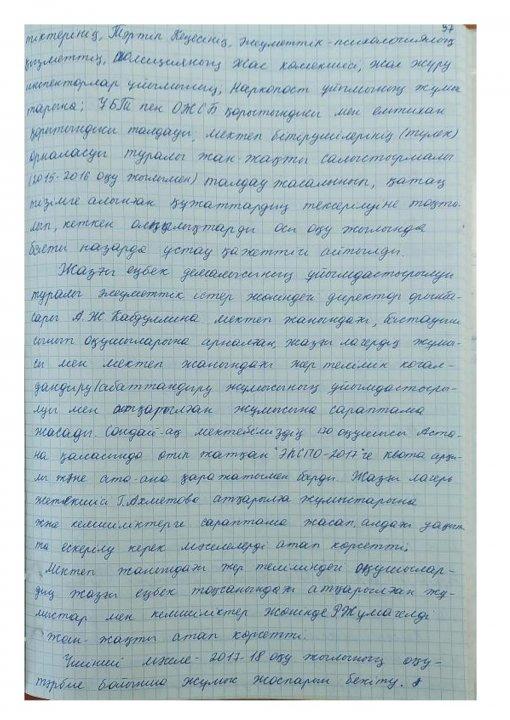 37
тіктерінің, Тәртіп Кеңесінің, әлеуметтік-психологиялық
қызметтің, полицияның жас көмекшісі, жол жүру
инспекторлар ұйымының, Наркопост ұйымының жұмыс
тарына; ҰБТ пен ОЖСБ қорытындысы мен емтихан
қорытындысы талдауы, мектеп бітірушілерінің (түлек)
орналасуы туралы жан-жақты салыстырмалы
(2015-2016 оқу жылымен) талдау жасалынып, қатаң
тізімге алынған құжаттардың тексерілуіне тоқта-
лып, кеткен олқылықтарды осы оқу жылында
бөлети назарда ұстау қажеттігі айтылды.
Жазғы еңбек демалысының ұйымдастырылуы
туралы әлеуметтік істер жөніндегі директор орынба-
сары А.Ж Кабдуллина мектеп жанындағы, бастауыш
сынып оқушыларына арналған, жазғы лагердің жұмы-
сы мен мектеп жанындағы жер телімін көгал-
дандыру/абаттандыру жұмысының ұйымдастыры-
луы мен атқарылған жұмысына сараптама
жасады. Сондай-ақ мектебіміздің 170 оқушысы Аста-
на қаласында өтіп жатқан ЭКСПО-2017 ге квота арқы-
лы және ата-ана қаражатымен барды. Жазғы лагерь
жетекшісі Г.Ахметова атқарылған жұмыстарына
және кемшіліктерге сараптама жасап, алдағы уақыт
та ескерілу керек мәселелерді атап көрсетті.
Мектеп жанындағы жер теліміндегі оқушылар-
дың жазғы еңбек тоқсанындағы атқарылған жұ-
мыстар мен кемшіліктер жөнінде Р.Жумагелді
жан-жақты атап көрсетті.
Үшінші мәселе - 2017-18 оқу жылының оқу-
тәрбие бойынша жұмыс жоспарын бекіту.